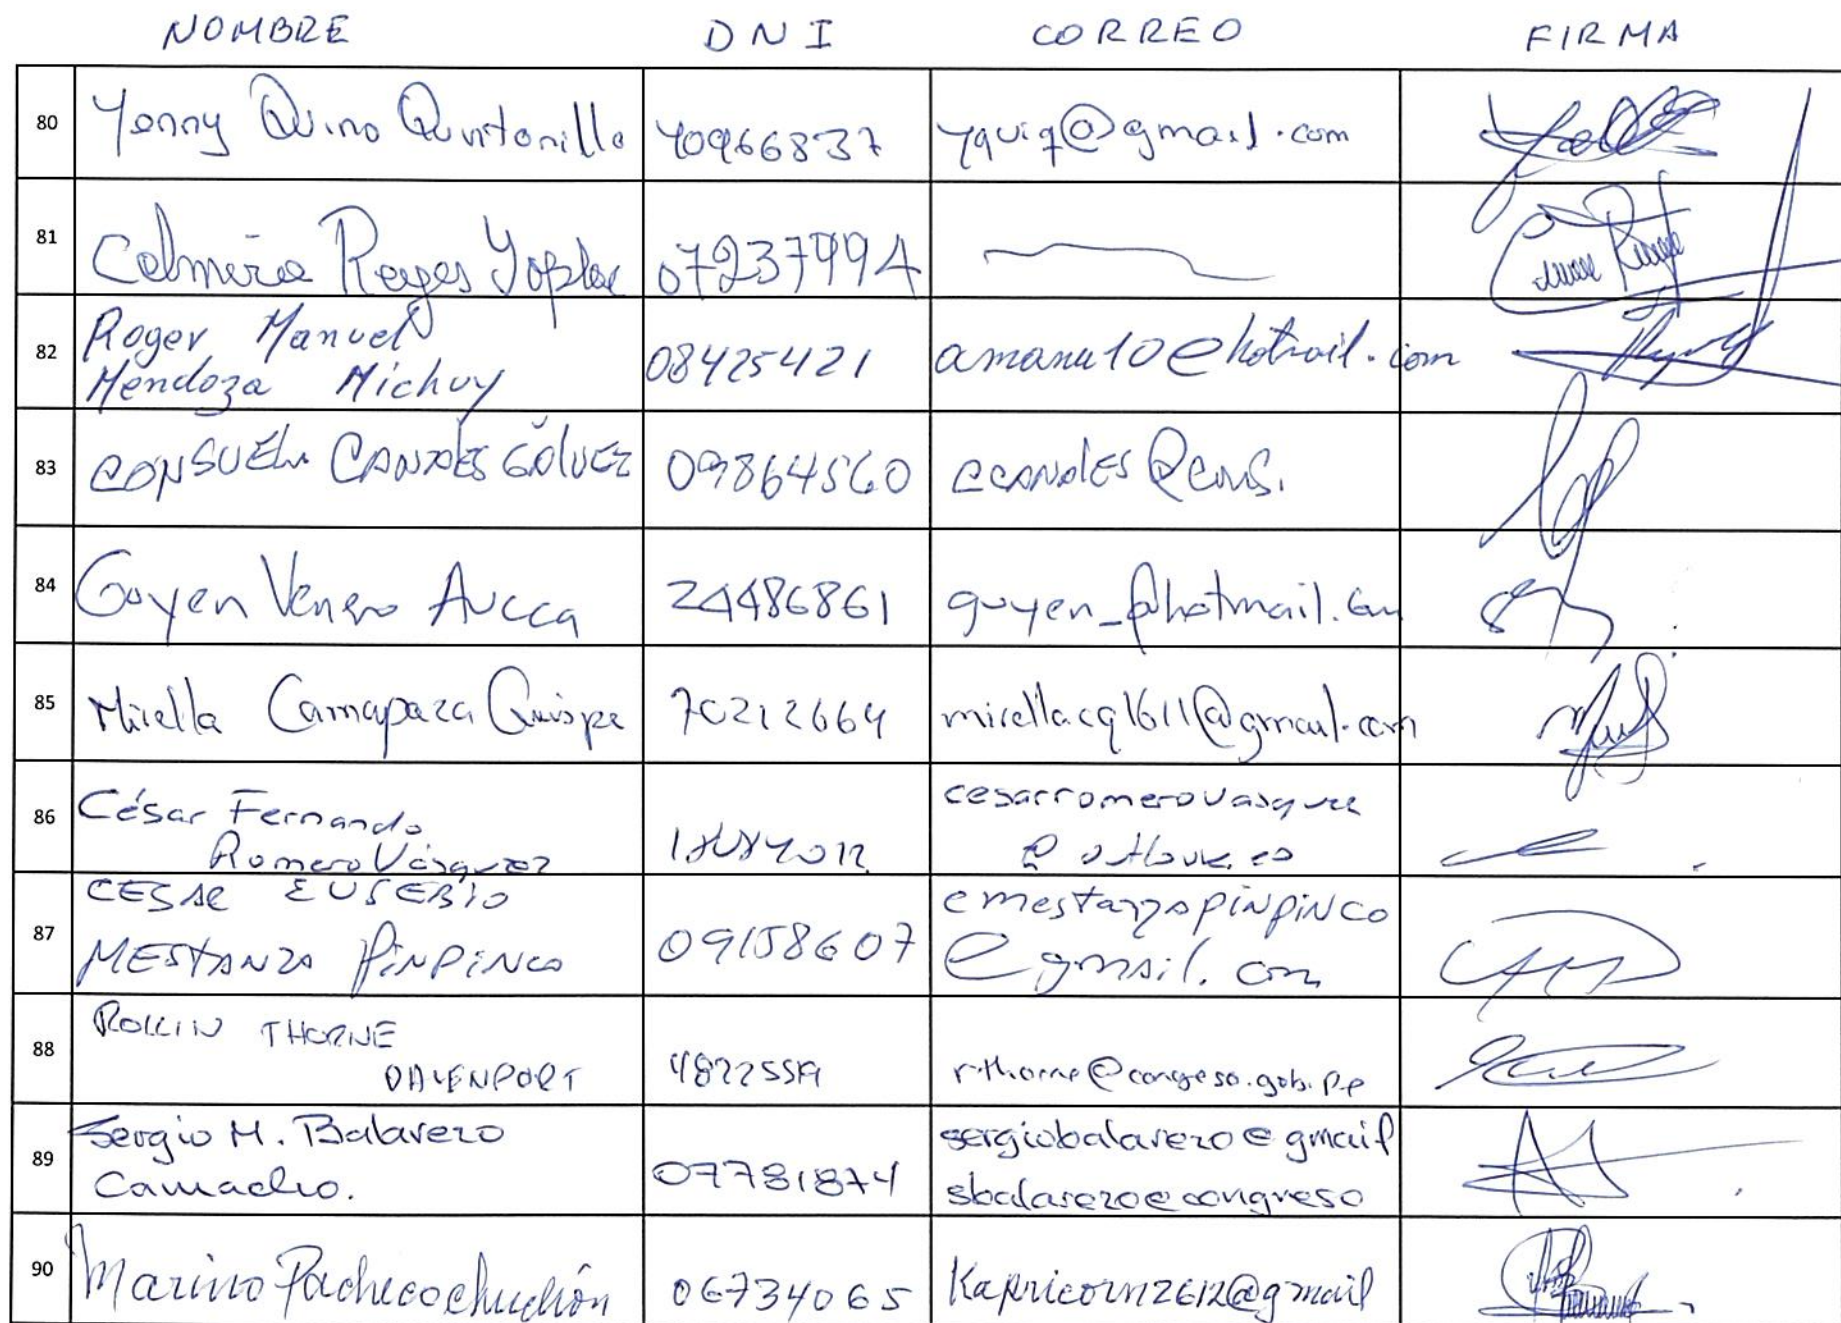 NOMBRE DNI CORREO FIRMA
80 Yenny Quino Quintanilla 40966837 yquiq@gmail.com
81 Reyes 07237994
82 Roger Manuel
Mendoza Michuy 08425421 amanu10@hotmail.com
83 CONSUELO CANALES GÁLVEZ 09864560
84 Guyen Venero Aucca 24486861 guyen_@hotmail.com
85 Mirella Camapaza Quispe 70212664 mirellacq1611@gmail.com
86 César Fernando
Romero Vásquez
cesarromerovasquez
@outlook.es
87 CESAR EUSEBIO
MESTANZA PINPINCO 09158607
cmestanzapinpinco
@gmail.com
88 ROLLIN THORNE
DAVENPORT rthorne@congreso.gob.pe
89 Sergio M. Balarezo
Camacho. 07781874
sergiobalarezo@gmail
sbalarezo@congreso
90 Marino Pacheco chuchón 06734065 Kapricorn2612@gmail